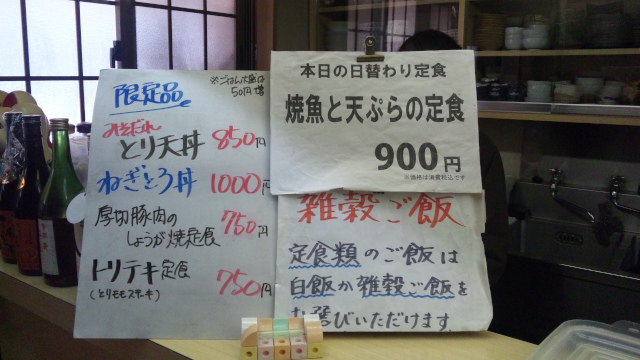 限定品
※ごはん大盛は
50円増
みそだれ
とり天丼 850円
ねぎとろ丼 1000円
厚切豚肉の
しょうが焼定食 750円
トリテキ定食 750円
(とりモモステーキ)
本日の日替わり定食
焼魚と天ぷらの定食
900円
※価格は消費税込です
雑穀ご飯
定食類のご飯は
白飯か雑穀ご飯を
お選びいただけます